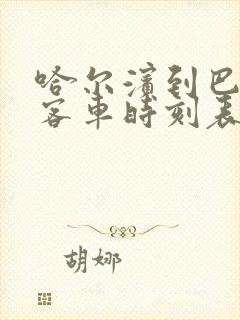 哈尔滨到巴
客车时刻表
胡娜